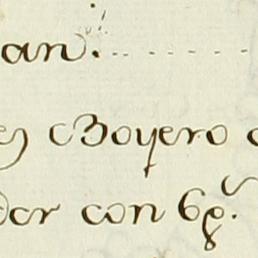 an.
es Boyero
dor con 6 p.